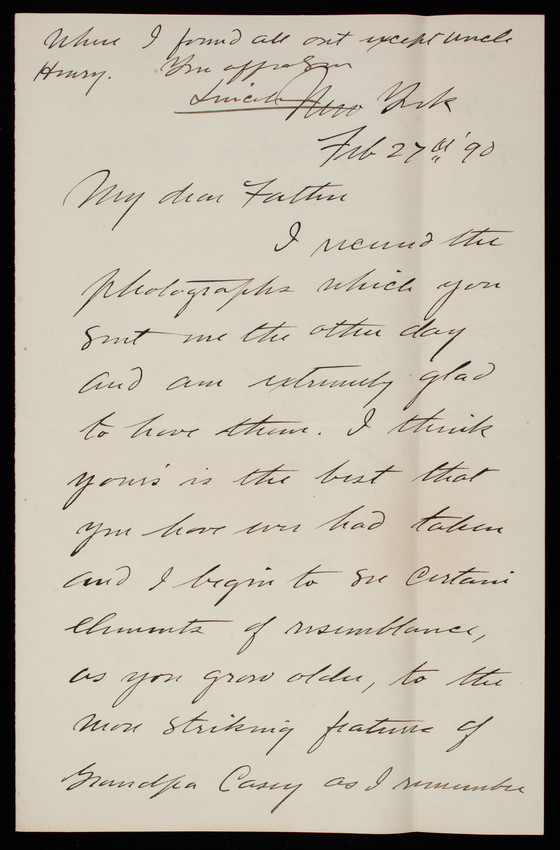 Where I found all out except Uncle
Henry. Your aff son
Lincoln
New York
Feb 27th '90
My dear Father
I received the
photographs which you
sent me the other day
and am extremely glad
to have them. I think
yours is the best that
you have ever had taken
and I begin to see certain
elements of resemblance,
as you grow older, to the
more striking feature of
Grandpa Casey as I remember